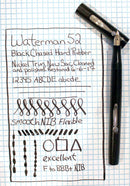 Waterman 52
Black Chased Hard Rubber
Nickel Trim, New Sac, Cleaned
and polished Restored
12345 ABCDE abcde
SMOOTH NIB Flexible
excellent
F to BBB+ NIB